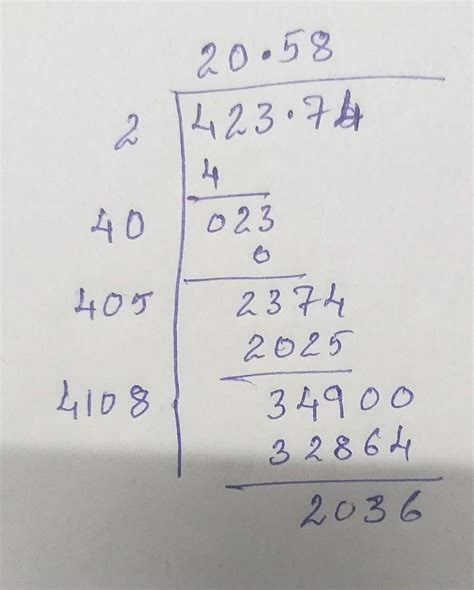 20.58
2 423.74
4
40 023
0
405 2374
2025
4108 34900
32864
2036